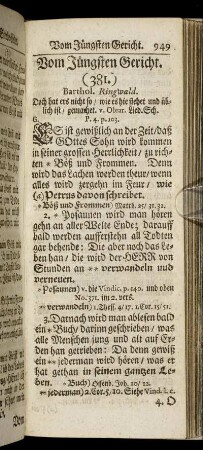 Vom Jüngsten Gericht. 949
Vom Jüngsten Gericht.
(381.)
Barthol. Ringwald.
Doch hat ers nicht so / wie es hie stehet und üb-
lich ist / gemachet. v. Olear. Lied. Sch.
6. P. 4. p. 103.
ES ist gewißlich an der Zeit / daß
GOttes Sohn wird kommen
in seiner grossen Herrlichkeit / zu rich-
ten * Böß und Frommen. Denn
wird das Lachen werden theur / wenn
alles wird zergehn im Feur / wie
(a) Petrus davon schreibet.
* Böß und Frommen) Matth. 25/31.32.
2. * Posaunen wird man hören
gehn an aller Welte Ende; darauff
bald werden aufferstehn all Todten
gar behende; Die aber noch das Le-
ben han / die wird der HERR von
Stunden an ** verwandeln und
verneuen.
* Posaunen) v. die Vindic. p. 140. und oben
No. 371. im 2. vers.
** verwandeln) 1. Thess. 4/17. 1. Cor. 15/51.
3. Darnach wird man ablesen bald
ein * Buch / darinn geschrieben / was
alle Menschen jung und alt auf Er-
den han getrieben: Da denn gewiß
ein ** jederman wird hören / was er
hat gethan in seinem gantzen Le-
ben. * Buch) Offenb. Joh. 20/12.
** jederman) 2. Cor. 5/10. Siehe Vind. l. c.
4. O